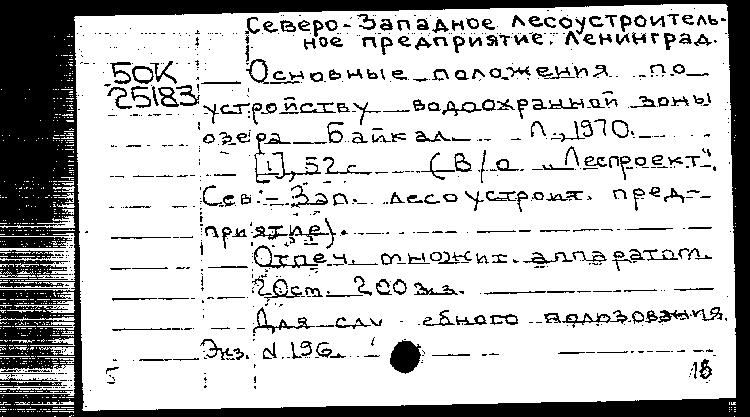 Северо-Западное лесоустроитель-
ное предприятие. Ленинград.
БОК
25183
Основные положения по
устройству водоохранной зоны
озера Байкал. Л., 1970.
[1], 52 с. (В/о „Леспроект".
Сев.-Зап. лесоустроит. пред-
приятие).
Отпеч. множит. аппаратом.
200 экз.
Для слу ебного пользования.
Экз. N 196.
5
18